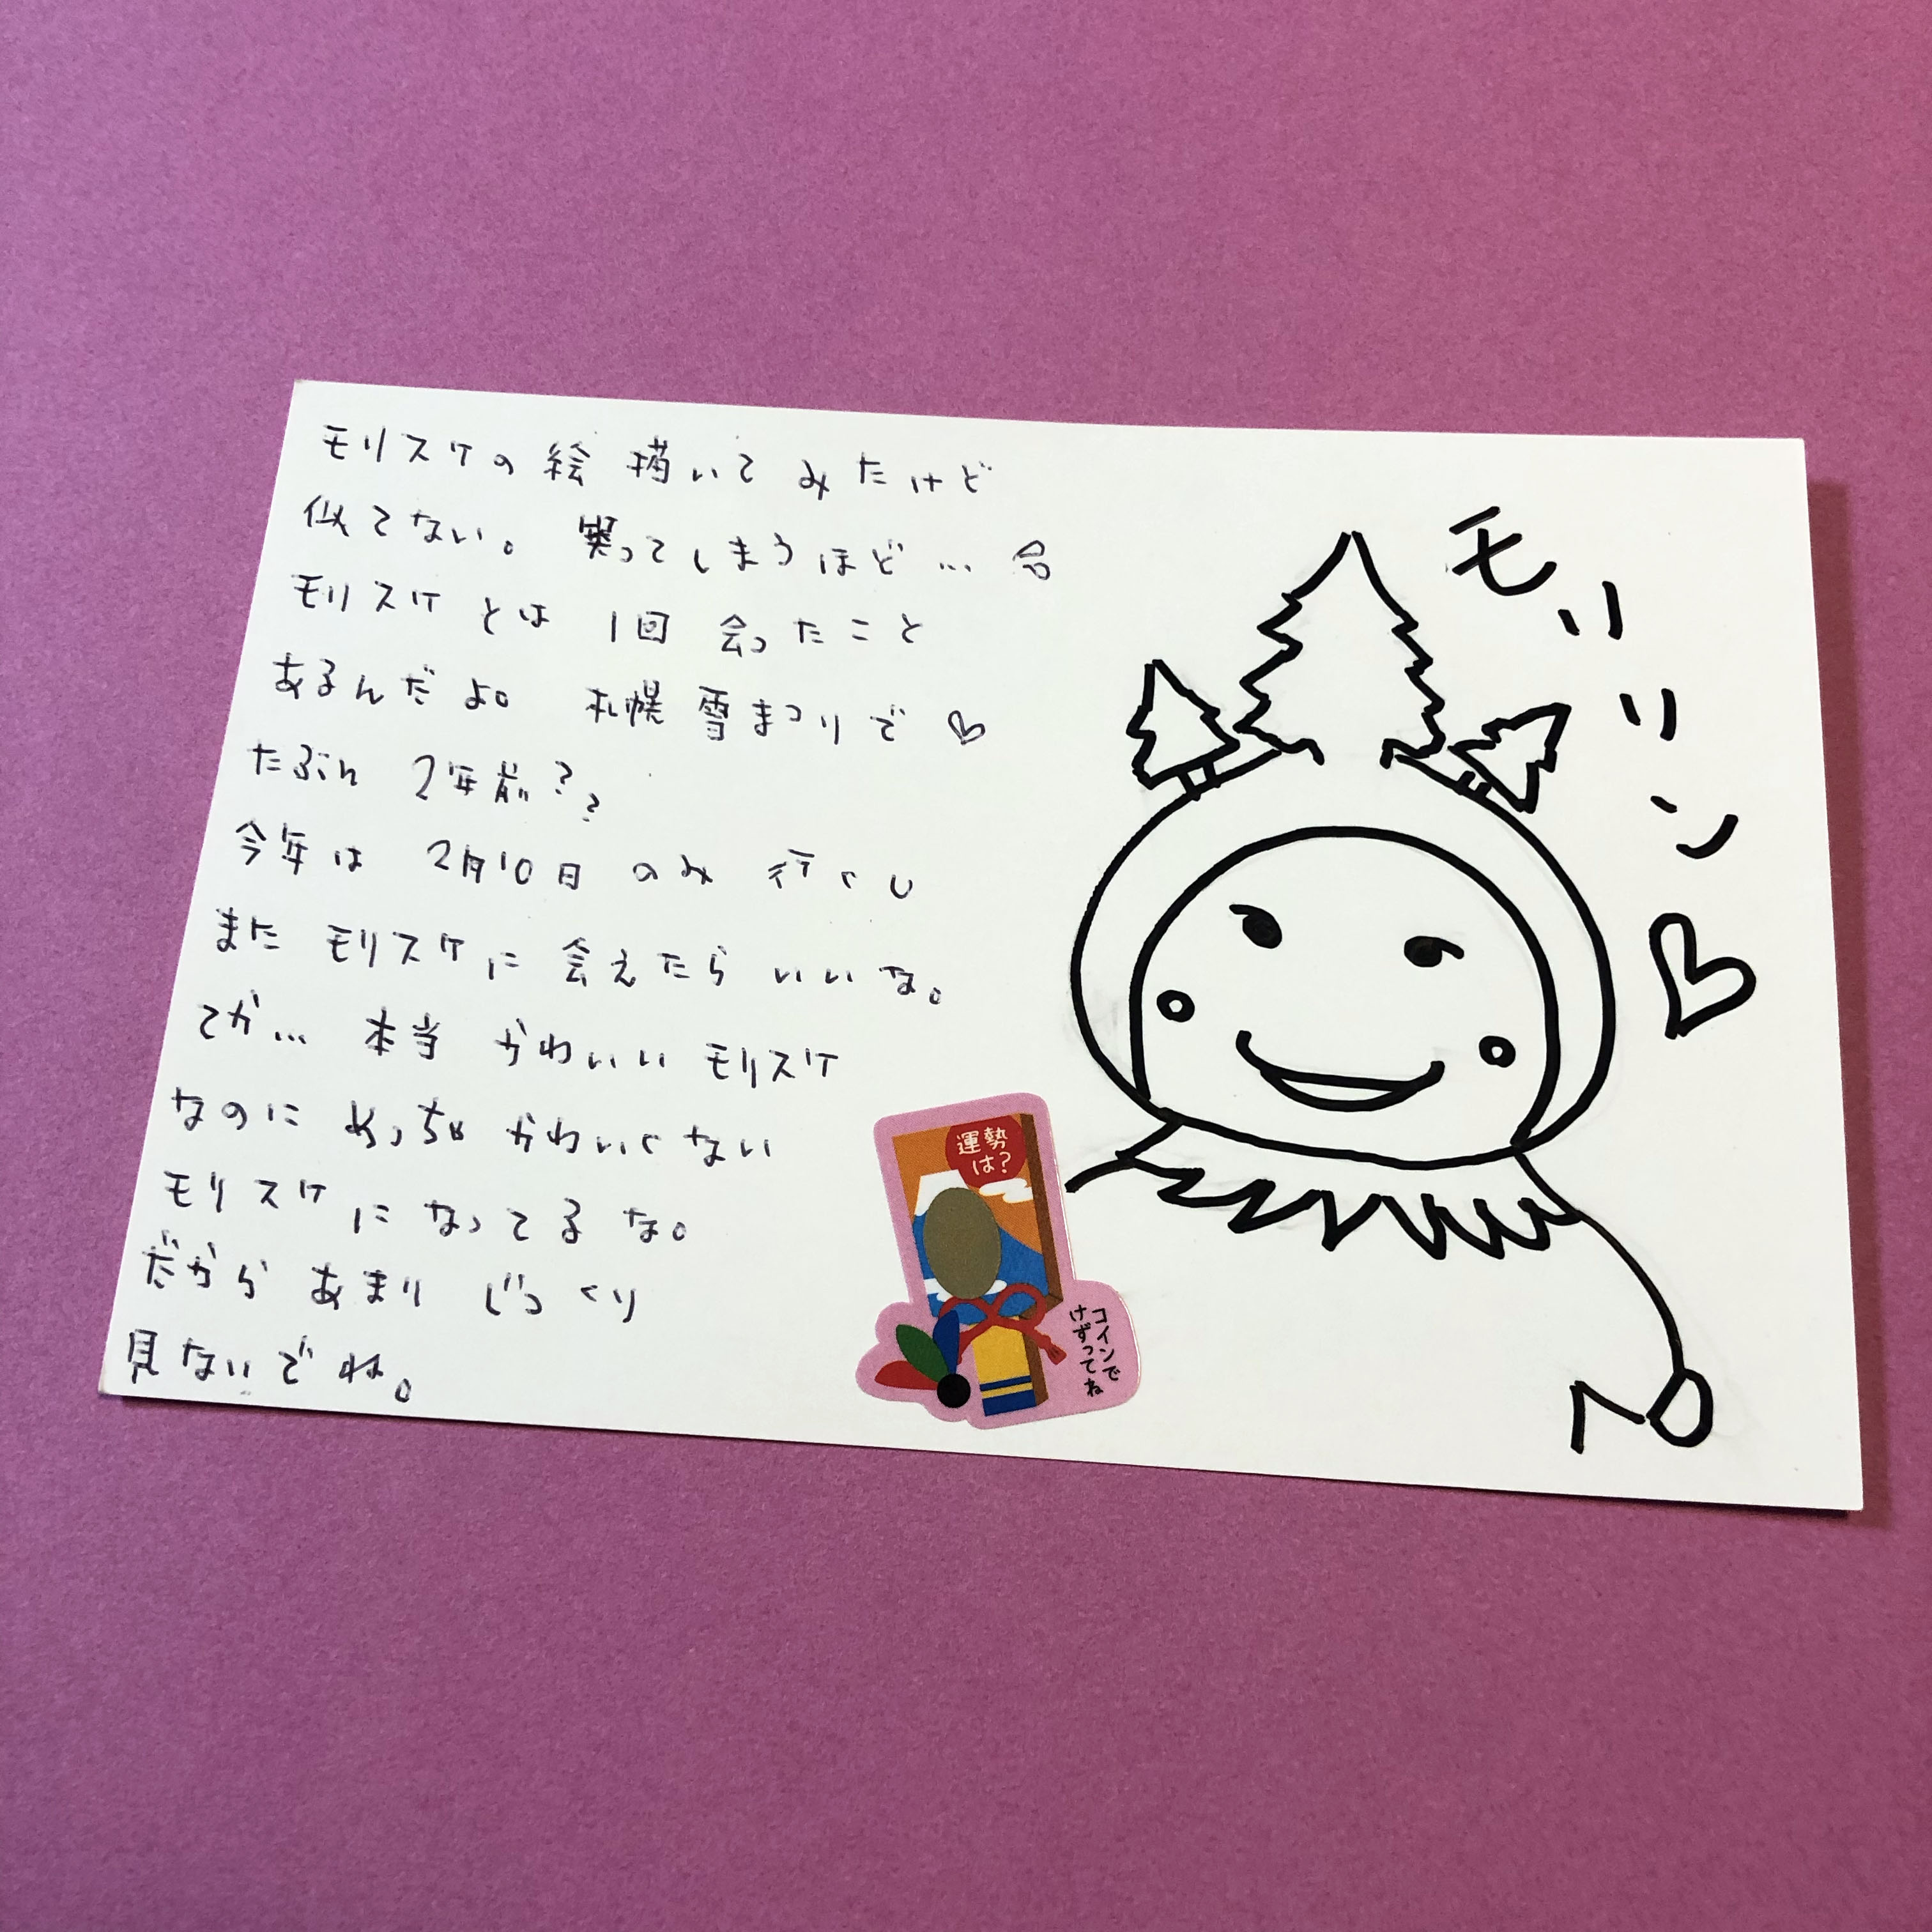 モリスケの絵 描いてみたけど
似てない。 笑ってしまうほど…
モリスケとは 1回 会ったこと
あるんだよ。 札幌 雪まつりで♡
たぶん 2年前??
今年は 2月10日 のみ 行くし
また モリスケに 会えたら いいな。
てか… 本当 かわいい モリスケ
なのに めっちゃ かわいくない
モリスケ になってるな。
だから あまり じっくり
見ないでね。
モリリン♡
運勢
は?
コインで
けずってね